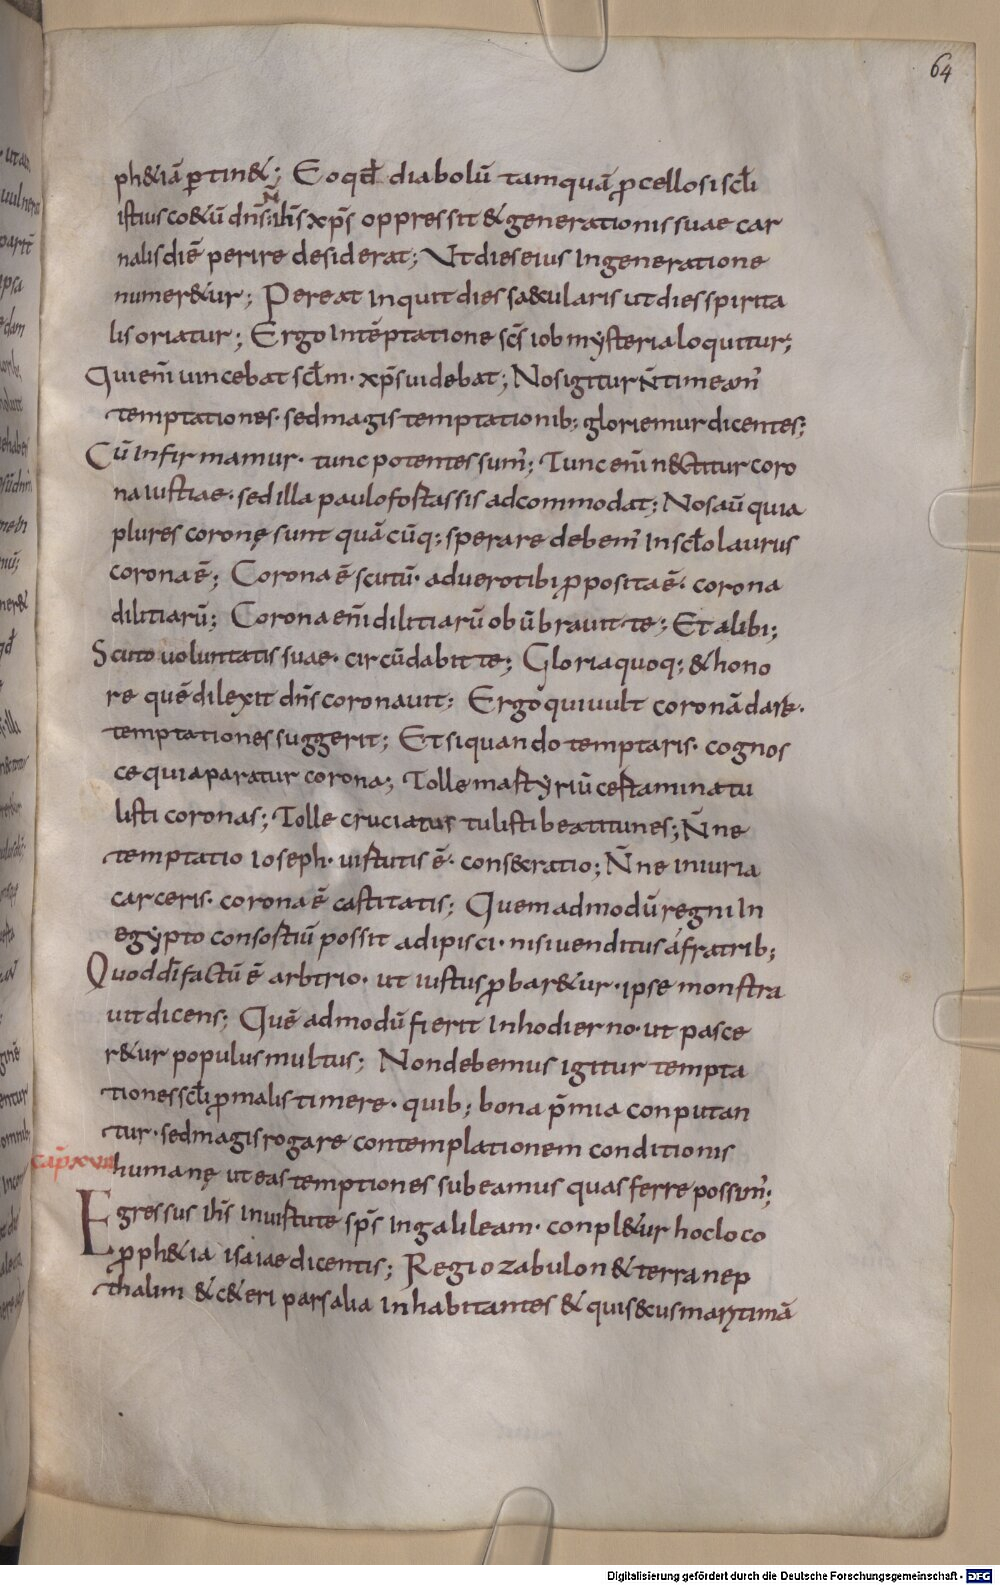 64
ph&iā ꝑtin&; Eoqđ diabolū tamquā ꝓcellosi scl̄i
istius co&ū dn̄s ihs xp̄s oppressit & generationis suae car
nalis diē perire desiderat; Ut dies eius In generatione
numer&ur; Pereat Inquit dies sæcularis ut dies spirita
lis oriatur; Ergo In tēptatione scs̄ iob mysteria loquitur;
Qui enī uincebat scl̄m· xp̄s uidebat; Nos igitur n̄ timeam᾽
temptationes· sed magis temptationib; gloriemur dicentes;
Cū Infirmamur· tunc potentes sum᾽; Tunc enī nectitur coro
na iustiae· sed illa paulo fortassis adcommodat; Nos aū quia
plures coronę sunt quācūq; sperare debem᾽ In scl̄o laurus
corona ē; Corona ē scutū· aduero tibi ꝓposita ē· corona
dilitiarū; Corona enī dilitiarū obūbrauit te; Et alibi;
Scuto uoluntatis suae· circūdabit te; Gloria quoq; & hono
re quē dilexit dn̄s coronauit; Ergo qui uult coronā dare·
temptationes suggerit; Et si quando temptaris· cognos
ce quia paratur corona; Tolle martyriū certamina tu
listi coronas; Tolle cruciatus tulisti beatitunes; N̄ne
temptatio Ioseph· uirtutis ē· consecratio; N̄ne iniuria
carceris· corona ē castitatis; Quemadmodū regni In
egypto consortiū possit adipisci· nisi uenditus á fratrib;
Quod dī factū ē arbtrio· ut iustus ꝓbar&ur· ipse monstra
uit dicens; Quē admodū fierit In hodierno· ut pasce
r&ur populus multus; Non debemus igitur tempta
tiones scl̄i ꝓ malis timere· quib; bona p̄mia conputan
tur· sed magis rogare contemplationem conditionis
cap̄ xvii
humanę ut eas temptiones subeamus quas ferre possum᾽;
Egressus ihs In uirtute sp̄s In galileam· conpl&ur hoc loco
ꝓph&ia isaiae dicentis; Regio zabulon & terra nep
thalim & c&eri parsalia Inhabitantes & qui secus marytimā
Digitalisierung gefördert durch die Deutsche Forschungsgemeinschaft - DFG